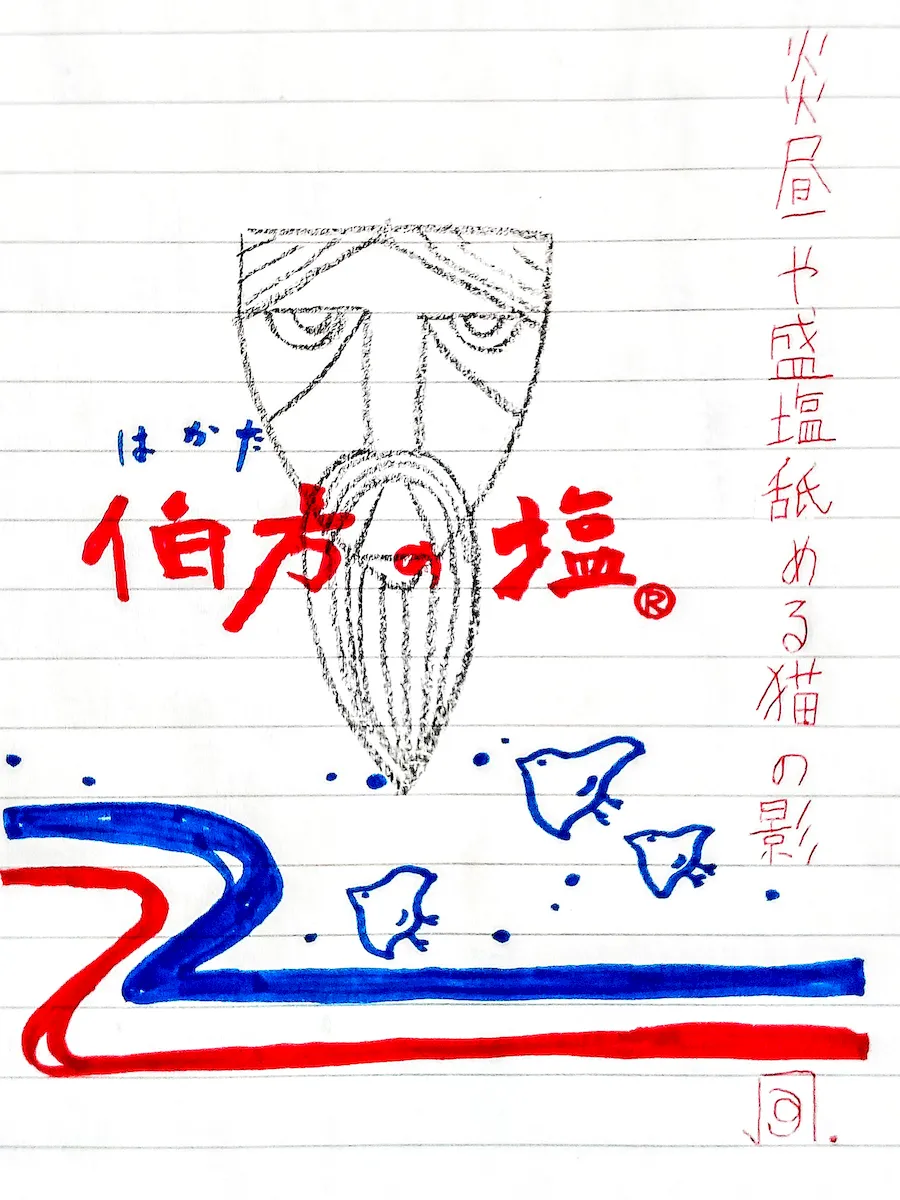 炎昼や盛塩舐める猫の影
はかた
伯方の塩®